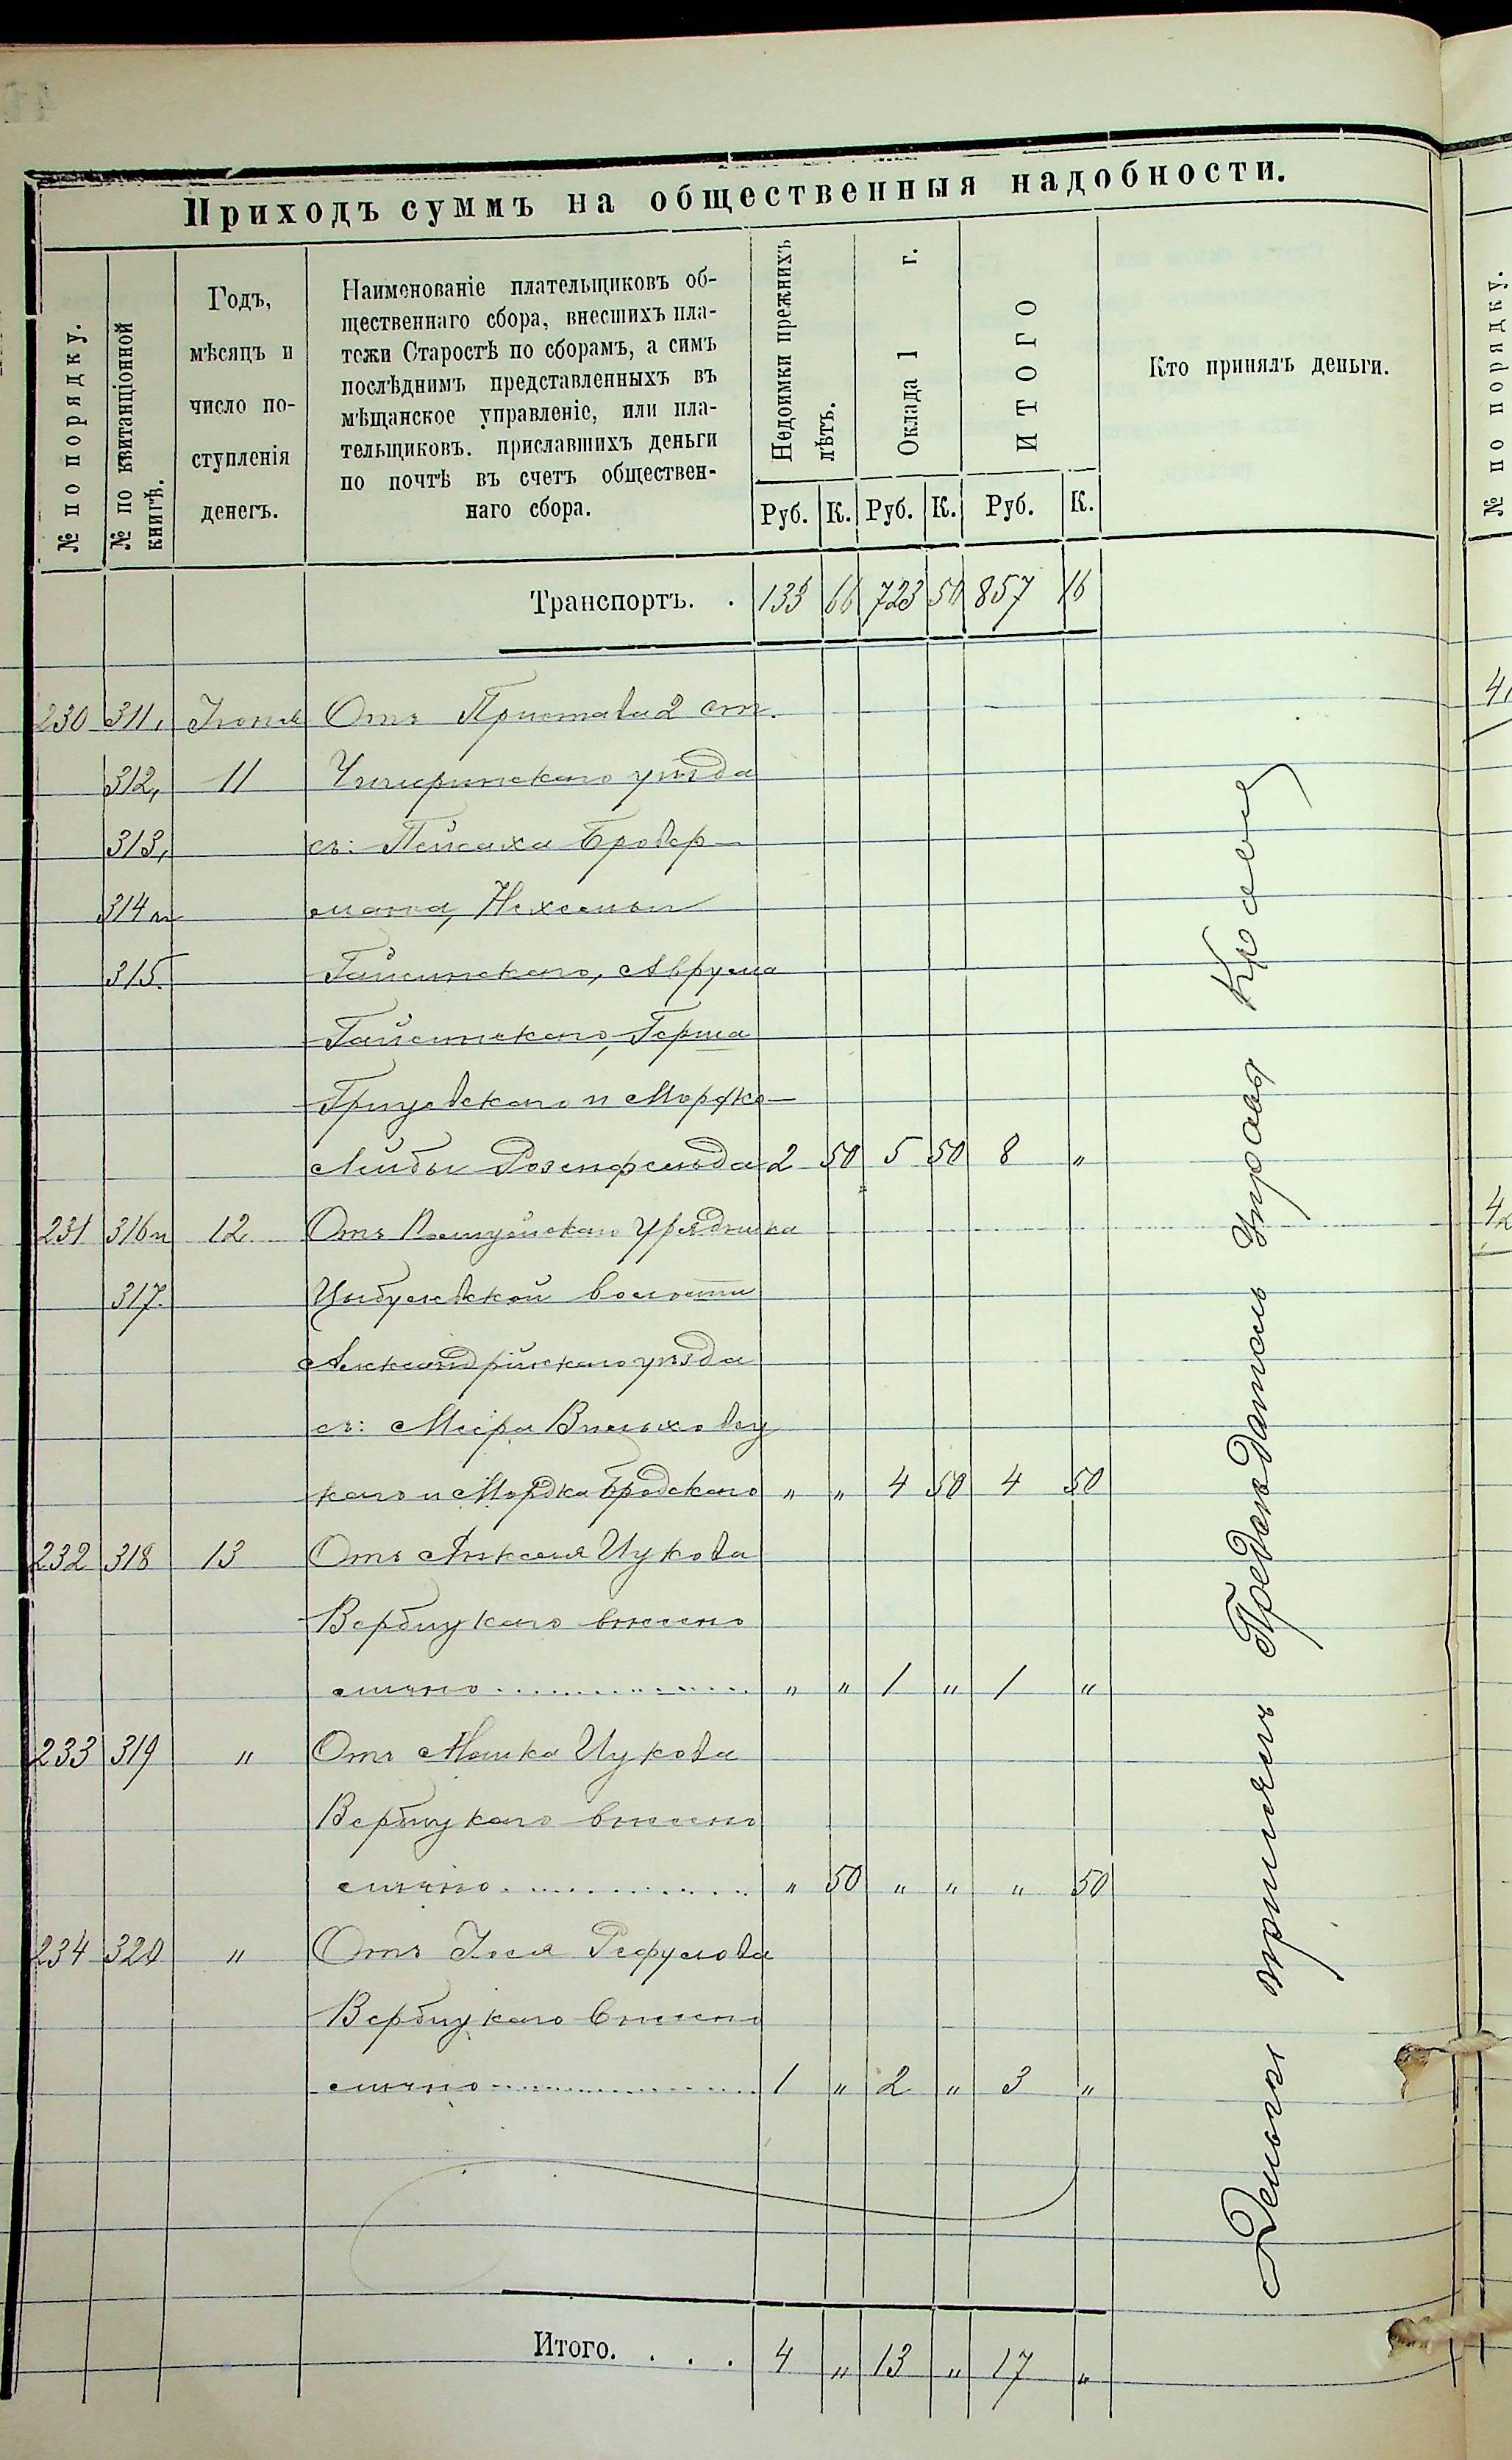 Приходъ суммъ на общественныя надобности.
№ по порядку.
№ по квитанціонной книгѣ.
Годъ, мѣсяцъ и число поступленія денегъ.
Наименованіе плательщиковъ об-
щественнаго сбора, внесшихъ пла-
тежи Старостѣ по сборамъ, а симъ
послѣднимъ представленныхъ въ
мѣщанское управленіе, или пла-
тельщиковъ. приславшихъ деньги
по почтѣ въ счетъ обществен-
наго сбора.
Недоимки прежнихъ лѣтъ.
Оклада 1 г.
ИТОГО
Кто принялъ деньги.
Руб. К. Руб. К. Руб. К.
Транспортъ. . 133 66 723 50 857 16
230 311, Іюня Отъ Пристава 2 ст.
312, 11 Чигиринскаго уѣзда
313, съ: Пейсаха Бровер-
314 и мана, Нехемьи
315. Гайсинскаго, Аврума
Гайсинскаго, Герша
Грицевскаго и Мордко-
Лейбы Розенфельда 2 50 5 50 8 "
231 316 и 12 Отъ Полицейскаго Урядника
317. Цыбулевской волости
Александрійскаго уѣзда
съ:
каго и Мордка Бродскаго " " 4 50 4 50
232 318 13 Отъ Анкеля Ицкова
Вербицкаго внесено
лично " " 1 " 1 "
233 319 " Отъ Мошка Ицкова
Вербицкаго внесено
лично " 50 " " " 50
234 320 " Отъ Іося Рефулова
Вербицкаго внесено
лично 1 " 2 " 3 "
Итого. . . . 4 " 13 " 17 "
Деньги принялъ Предсѣдатель Управы
№ по порядку.